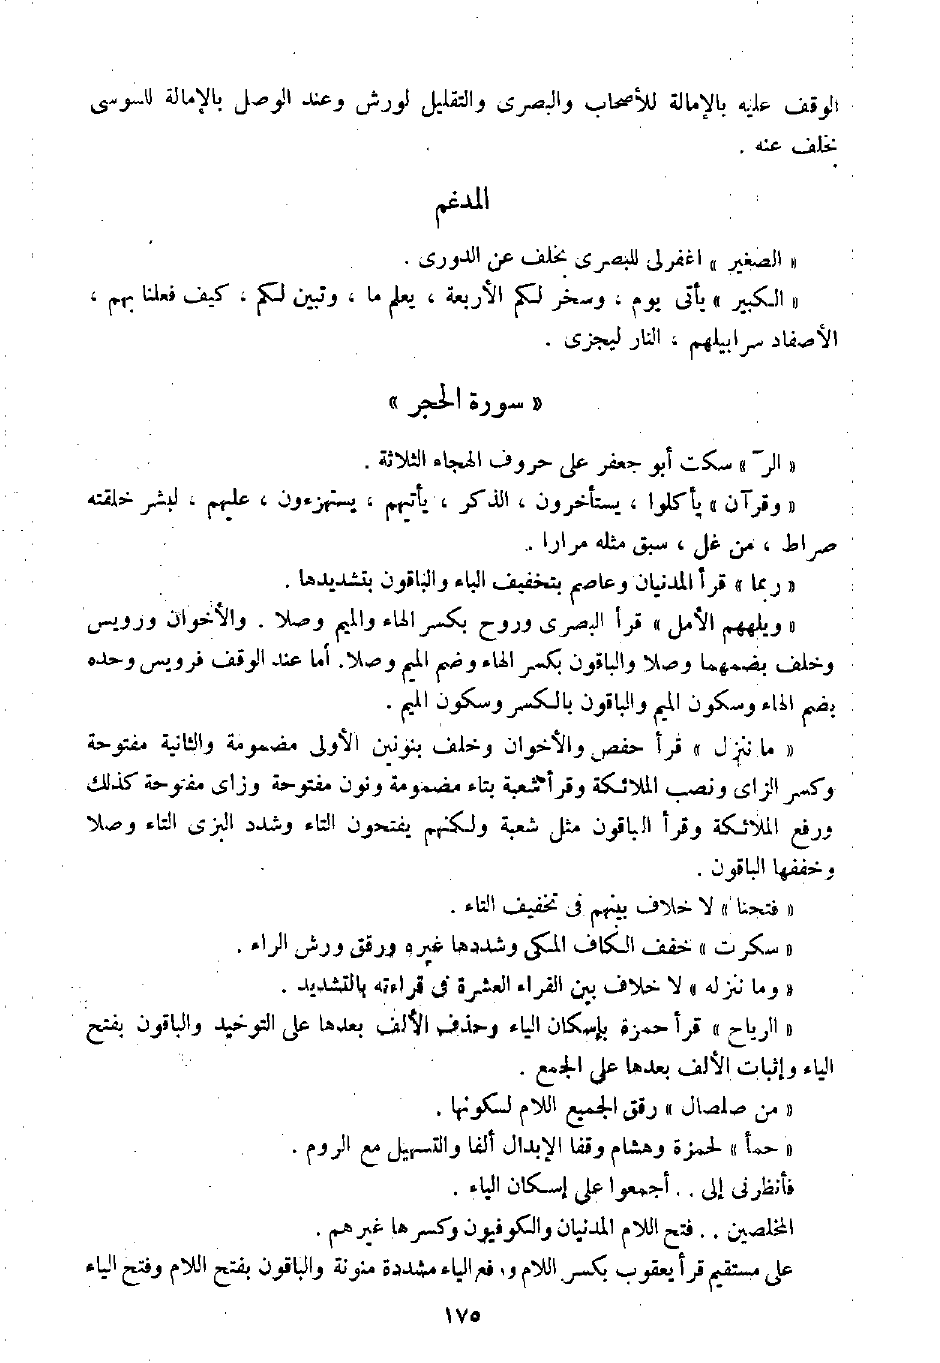 الوقف عليه بالإمالة للأصحاب والبصرى والتقليل لورش وعند الوصل بالإمالة للسوسى
بخلف عنه .
المدغم
« الصغير » اغفرلى للبصرى بخلف عن الدورى .
« الكبير » يأتى يوم ، وسخر لكم الأربعة ، يعلم ما ، وتبين لكم ، كيف فعلنا بهم ،
الأصفاد سرابيلهم ، النار ليجزى .
« سورة الحجر »
« الرٓ » سكت أبو جعفر على حروف الهجاء الثلاثة .
« وقرآن » يأكلوا ، يستأخرون ، الذكر ، يأتيهم ، يستهزءون ، عليهم ، لبشر خلقته
صراط ، من غل ، سبق مثله مرارا .
« ربما » قرأ المدنيان وعاصم بتخفيف الباء والباقون بتشديدها .
« ويلههم الأمل » قرأ البصرى وروح بكسر الهاء والميم وصلا . والأخوان ورويس
وخلف بضمهما وصلا والباقون بكسر الهاء وضم الميم وصلا. أما عند الوقف فرويس وحده
بضم الهاء وسكون الميم والباقون بالكسر وسكون الميم .
« ما ننزل » قرأ حفص والأخوان وخلف بنونين الأولى مضمومة والثانية مفتوحة
وكسر الزاى ونصب الملائكة وقرأ شعبة بتاء مضمومة ونون مفتوحة وزاى مفتوحة كذلك
ورفع الملائكة وقرأ الباقون مثل شعبة ولكنهم يفتحون التاء وشدد البزى التاء وصلا
وخففها الباقون .
« فتحنا » لا خلاف بينهم فى تخفيف التاء .
« سكرت » خفف الكاف المكى وشددها غيره ورقق ورش الراء .
« وما ننزله » لا خلاف بين القراء العشرة فى قراءته بالتشديد .
« الرياح » قرأ حمزة بإسكان الياء وحذف الألف بعدها على التوخيد والباقون بفتح
الياء وإثبات الألف بعدها على الجمع .
« من صلصال » رقق الجميع اللام لسكونها .
« حمأ » لحمزة وهشام وقفا الإبدال ألفا والتسهيل مع الروم .
فأنظرنى إلى . . أجمعوا على إسكان الياء .
المخلصين . . فتح اللام المدنيان والكوفيون وكسرها غيرهم .
على مستقيم قرأ يعقوب بكسر اللام ورفع الياء مشددة منونة والباقون بفتح اللام وفتح الياء
١٧٥